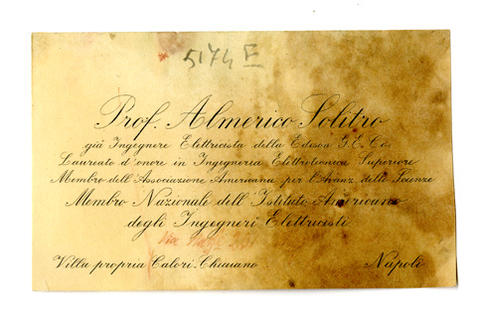 5174 E
Prof. Almerico Solitro
già Ingegnere Elettricista della Edison G. E. Co.
Laureato d'onore in Ingegneria Elettrotecnica Superiore
Membro dell'Associazione Americana per l'Avanz. delle Scienze
Membro Nazionale dell'Istituto Americano
degli Ingegneri Elettricisti
Villa propria Calori-Chiaiano Napoli